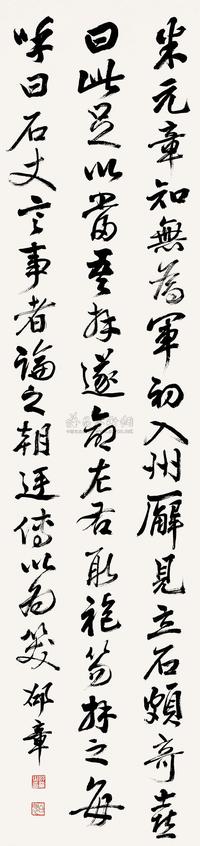 米元章知無為軍初入州廨見立石頗奇喜
曰此足以當吾拜遂命左右取袍笏拜之每
呼曰石丈言事者論之朝廷傳以為笑 邵章